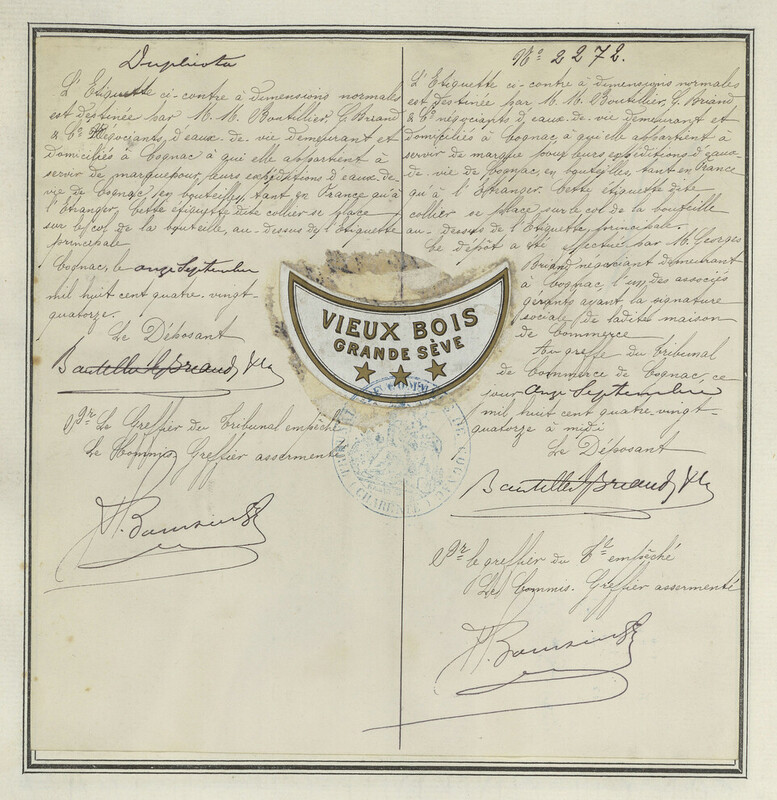 Duplicata
L'Etiquette ci-contre à dimensions normales
est destinée par M. M. Boutillier, G. Briand
& Cie Négociants d'eaux-de-vie demeurant et
domiciliés à Cognac à qui elle appartient à
servir de marque pour leurs expéditions d'eaux-de-
vie de Cognac, en bouteilles, tant en France qu'à
l'Etranger. Cette étiquette dite collier se place
sur le col de la bouteille, au-dessus de l'Etiquette
principale.
Cognac, le onze Septembre
mil huit cent quatre-vingt-
quatorze.
Le Déposant
Boutillier G Briand & Cie
Pr. Le Greffier du Tribunal empêché
Le Commis Greffier assermenté
VIEUX BOIS
GRANDE SÈVE
No 2272.
L'Etiquette ci-contre à dimensions normales
est destinée par M. M. Boutillier, G. Briand
& Cie négociants d'eaux-de-vie demeurant et
domiciliés à Cognac à qui elle appartient à
servir de marque pour leurs expéditions d'eaux-
de-vie de Cognac, en bouteilles, tant en France
qu'à l'Etranger. Cette étiquette dite
collier se place sur le col de la bouteille
au-dessus de l'Etiquette principale.
Le dépôt a été effectué par M. Georges
Briand négociant demeurant
à Cognac, l'un des associés
gérants ayant la signature
sociale de ladite maison
de Commerce.
Au greffe du Tribunal
de Commerce de Cognac, ce
jour onze Septembre
mil huit cent quatre-vingt-
quatorze à midi
Le Déposant
Boutillier G Briand & Cie
Pr. le greffier du Tal empêché
Le Commis. Greffier assermenté